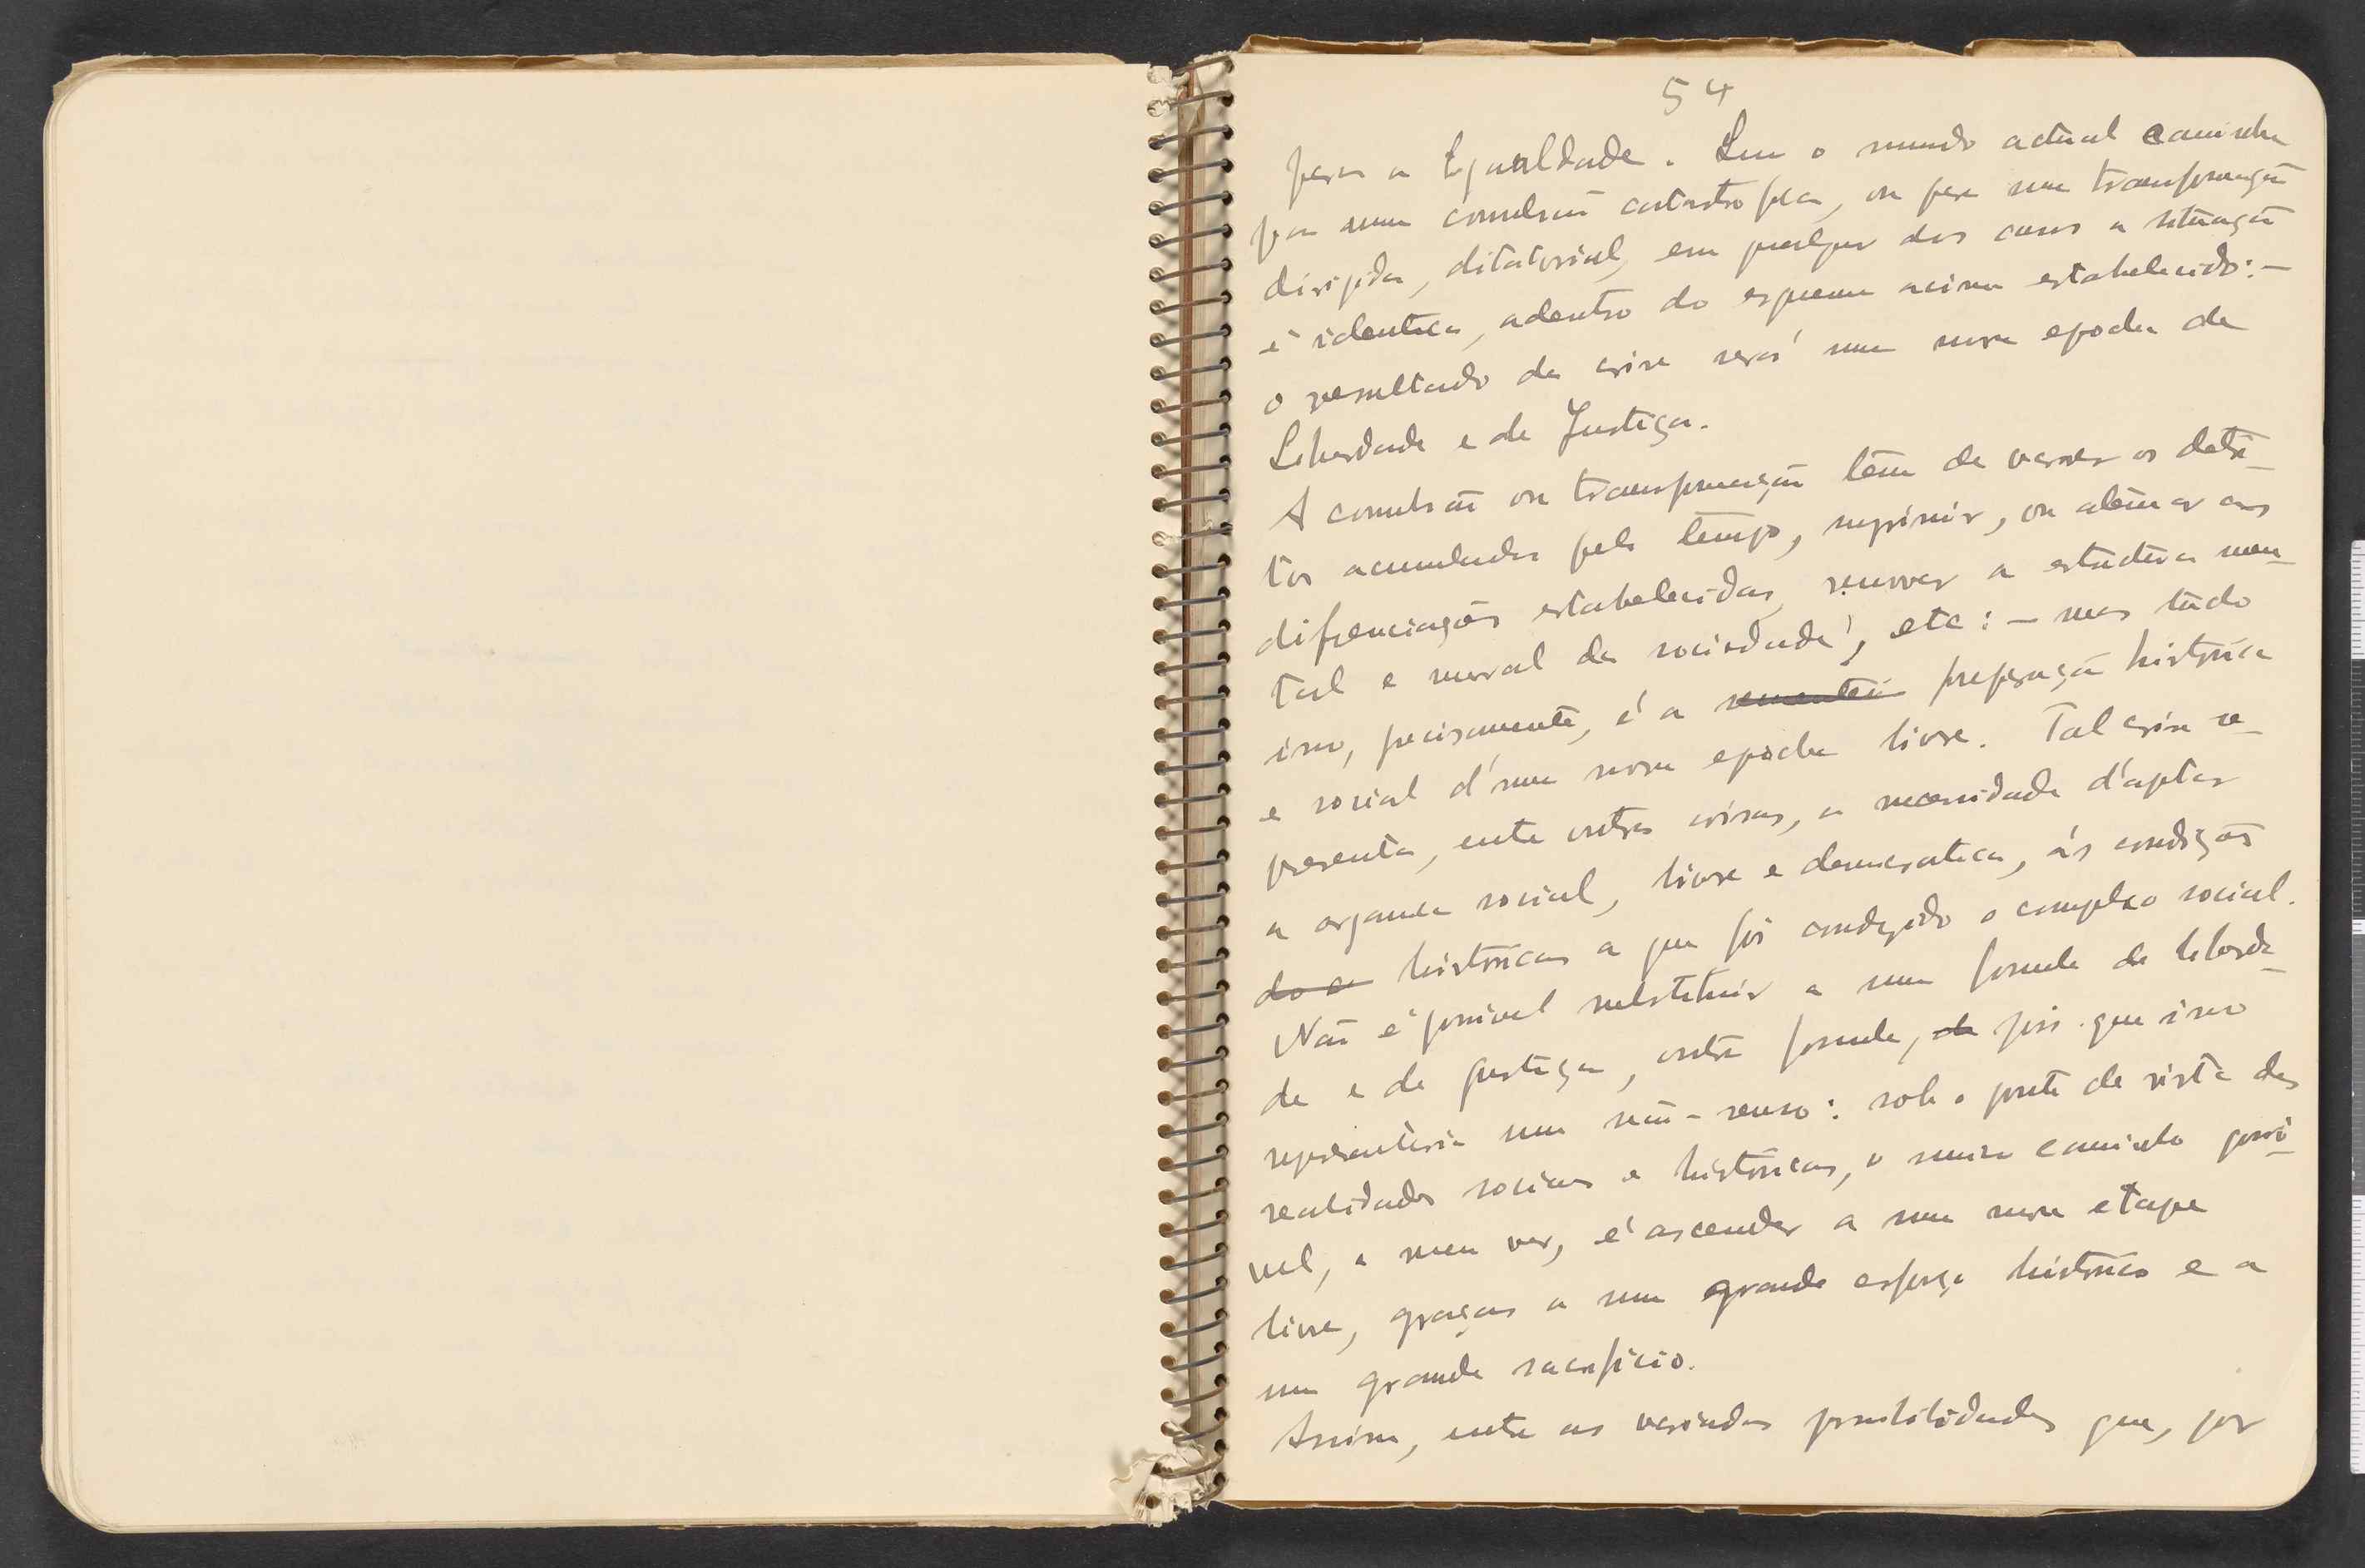 54
para a Egualdade. Quer o mundo actual caminhe
para uma convulsão catastrofica, ou para uma transformação
dirigida, ditatorial, em qualquer dos casos a situação
é identica, adentro do esquema acima estabelecido: –
o resultado da crise será uma nova epoca de
Liberdade e de Justiça.
A convulsão ou transformação têm de varrer os detri-
tos acumulados pelo tempo, suprimir, ou atenuar as
diferenciações estabelecidas, renovar a estrutura men-
tal e moral da sociedade, etc: – mas tudo
isso, precisamente, é a preparação histórica
e social d'uma nova epoca livre. Tal crise re-
presenta, entre outras coisas, a necessidade d'aptar
a organica social, livre e democratica, ás condições
do a históricas a que foi conduzido o complexo social.
Não é possivel substituir a uma formula de liberda-
de e de justiça, outra formula, de pois que isso
representaria um não-senso: sob o ponto de vista das
realidades sociaes e históricas, o unico caminho possi-
vel, a meu ver, é ascender a uma nova etape
livre, graças a um grande esforço histórico e a
um grande sacrificio.
Assim, entre as variadas possibilidades que, por